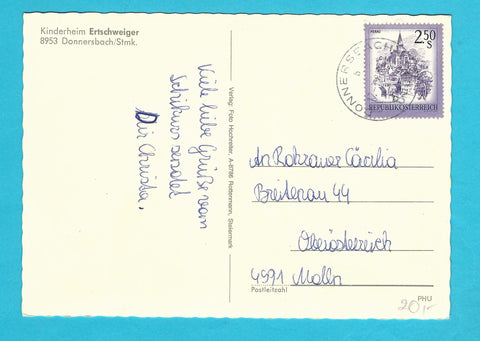 Kinderheim Ertschweiger
8953 Donnersbach/Stmk.
Viele liebe Grüße vom
Schikurs sendet
Dir Christa.
Verlag: Foto Hochreiter, A-8786 Rottenmann, Steiermark
PERAU
2.50
S
REPUBLIK ÖSTERREICH
DONNERSBACH
An Rohrauer Cäcilia
Breitenau 44
Oberösterreich
4591 Molln
Postleitzahl
PHU
20,-